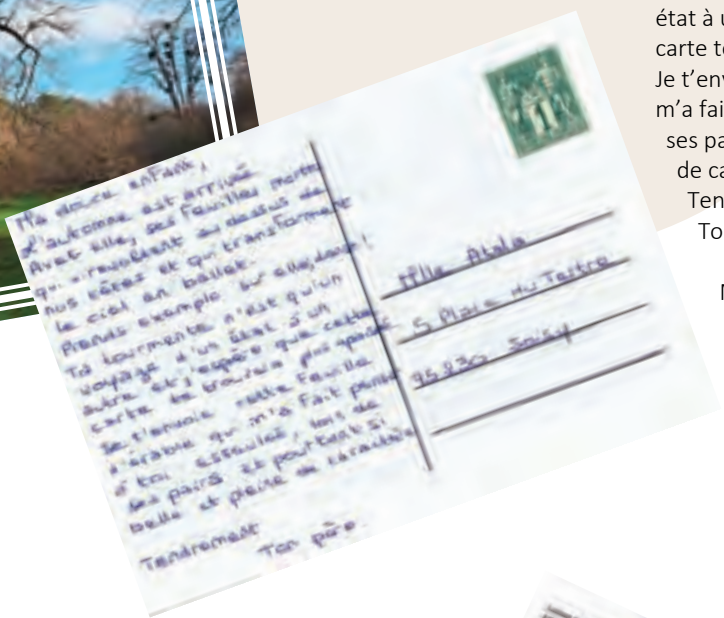 Ma douce enfant,
L'automne est arrivée
Avec elle, ses feuilles mortes
qui virevoltent au dessus de
nos têtes et qui transforment
le ciel en ballet.
Prends exemple sur elle,
Ta tourmente n'est qu'un
voyage d'un état à un
autre et j'espère que cette
carte te trouvera plus apaisée
Je t'envoie cette feuille
d'érable qui m'a fait penser
à toi. Esseulée, loin de
ses pairs et pourtant si
belle et pleine de caractère
Tendrement
Ton père
Mlle Atala
5 Place du Tertre
95230 Soisy
état à u
carte te
Je t'env
m'a fai
ses pa
de ca
Ten
To